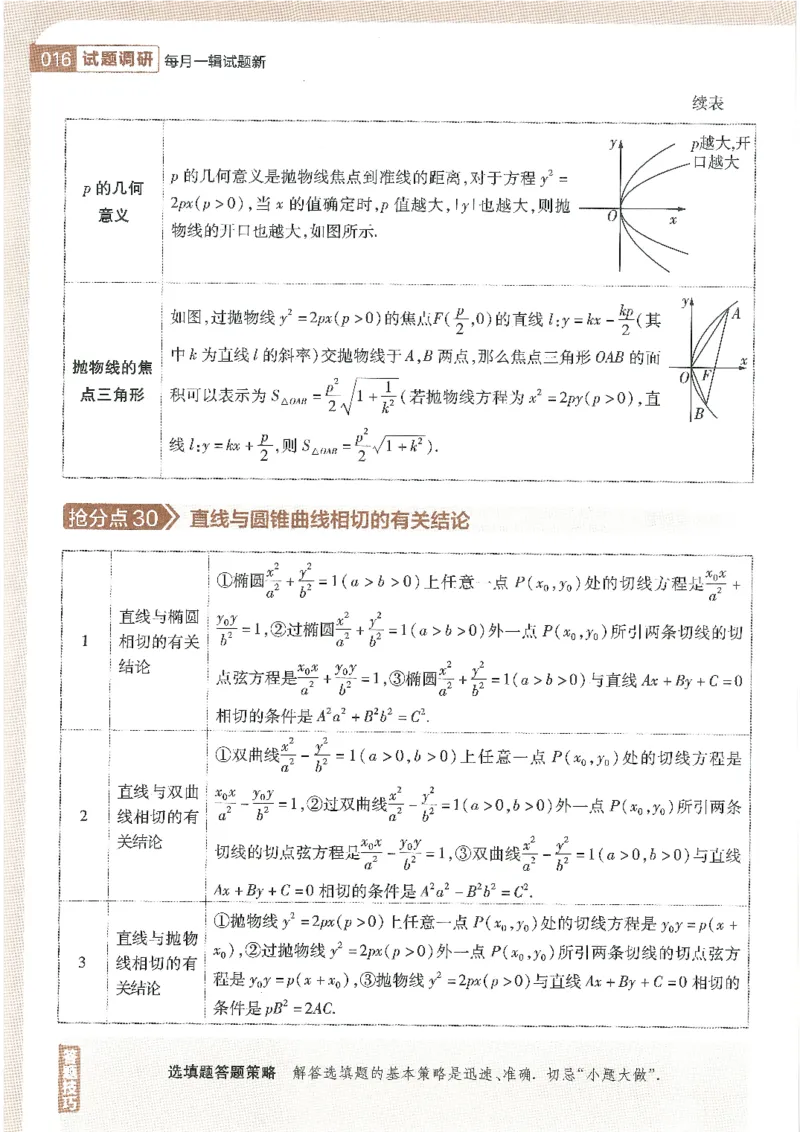 016 试题调研 每月一辑试题新
续表
p 的几何
意义
p 的几何意义是抛物线焦点到准线的距离,对于方程 y² =
2px(p>0),当 x 的值确定时,p 值越大,|y|也越大,则抛
物线的开口也越大,如图所示.
y
p越大,开
口越大
O
x
抛物线的焦
点三角形
如图,过抛物线 y² =2px(p>0)的焦点F(p/2,0)的直线 l:y=kx-kp/2(其
中 k 为直线 l 的斜率)交抛物线于 A,B 两点,那么焦点三角形 OAB 的面
积可以表示为 S△OAB = p²/2 √(1+1/k²) (若抛物线方程为 x² =2py(p>0),直
线 l:y=kx+p/2,则 S△OAB = p²/2 √(1+k²)).
y
A
x
O
F
B
抢分点 30 直线与圆锥曲线相切的有关结论
1
直线与椭圆
相切的有关
结论
①椭圆x²/a²+y²/b²=1(a>b>0)上任意一点 P(x₀,y₀)处的切线方程是x₀x/a²+
y₀y/b²=1,②过椭圆x²/a²+y²/b²=1(a>b>0)外一点 P(x₀,y₀)所引两条切线的切
点弦方程是x₀x/a²+y₀y/b²=1,③椭圆x²/a²+y²/b²=1(a>b>0)与直线 Ax+By+C=0
相切的条件是 A²a²+B²b²=C².
2
直线与双曲
线相切的有
关结论
①双曲线x²/a²-y²/b²=1(a>0,b>0)上任意一点 P(x₀,y₀)处的切线方程是
x₀x/a²-y₀y/b²=1,②过双曲线x²/a²-y²/b²=1(a>0,b>0)外一点 P(x₀,y₀)所引两条
切线的切点弦方程是x₀x/a²-y₀y/b²=1,③双曲线x²/a²-y²/b²=1(a>0,b>0)与直线
Ax+By+C=0 相切的条件是 A²a²-B²b²=C².
3
直线与抛物
线相切的有
关结论
①抛物线 y²=2px(p>0)上任意一点 P(x₀,y₀)处的切线方程是 y₀y=p(x+
x₀),②过抛物线 y²=2px(p>0)外一点 P(x₀,y₀)所引两条切线的切点弦方
程是 y₀y=p(x+x₀),③抛物线 y²=2px(p>0)与直线 Ax+By+C=0 相切的
条件是 pB²=2AC.
答题技巧
选填题答题策略 解答选填题的基本策略是迅速、准确. 切忌“小题大做”.